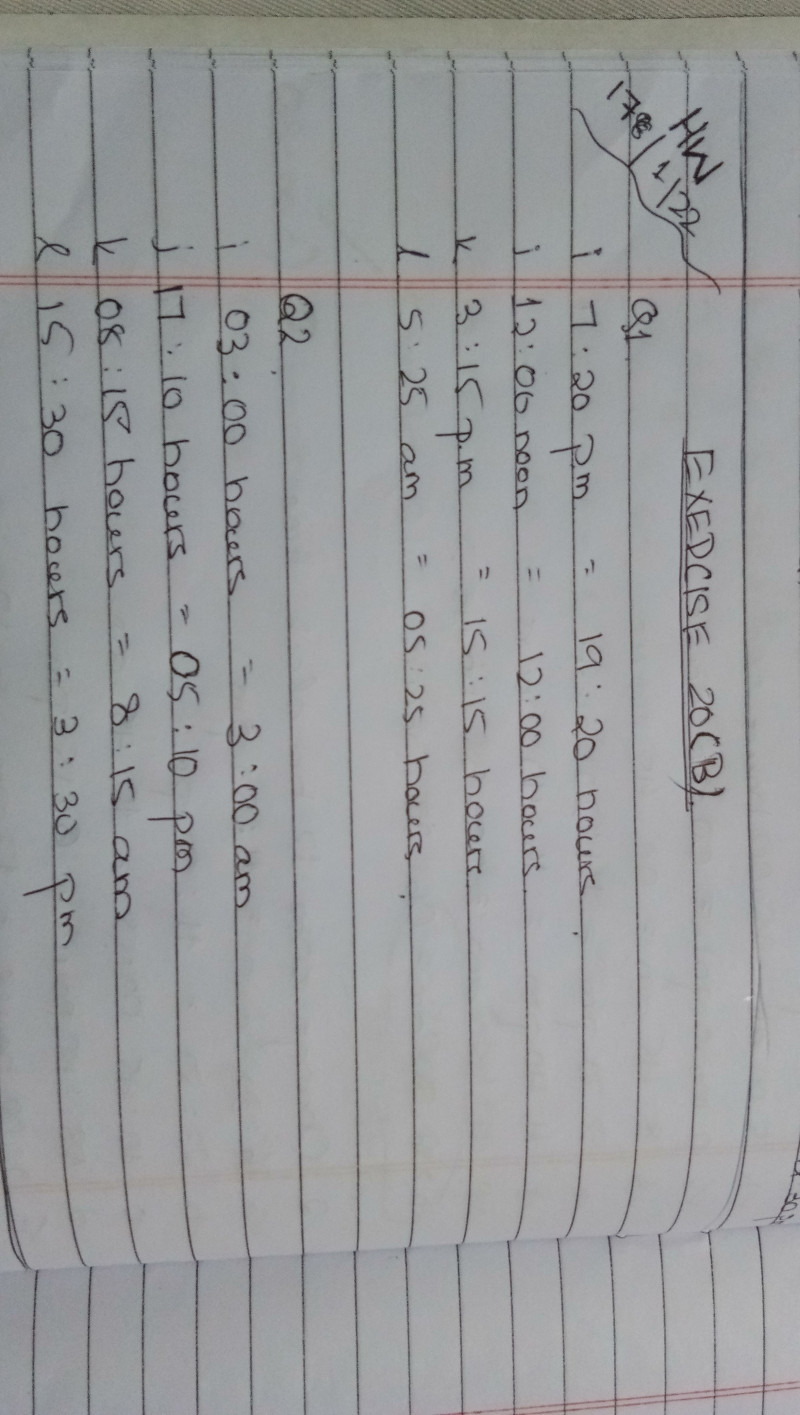 HW
EXEDCISE 20(B)
Q1
i 7:20 pm = 19:20 hours.
j 12:00 noon = 12:00 hours
k 3:15 p.m = 15:15 hours
l 5:25 am = 05:25 hours.
Q2
i 03:00 hours = 3:00 am
j 17:10 hours = 05:10 pm
k 08:15 hours = 8:15 am
l 15:30 hours = 3:30 pm